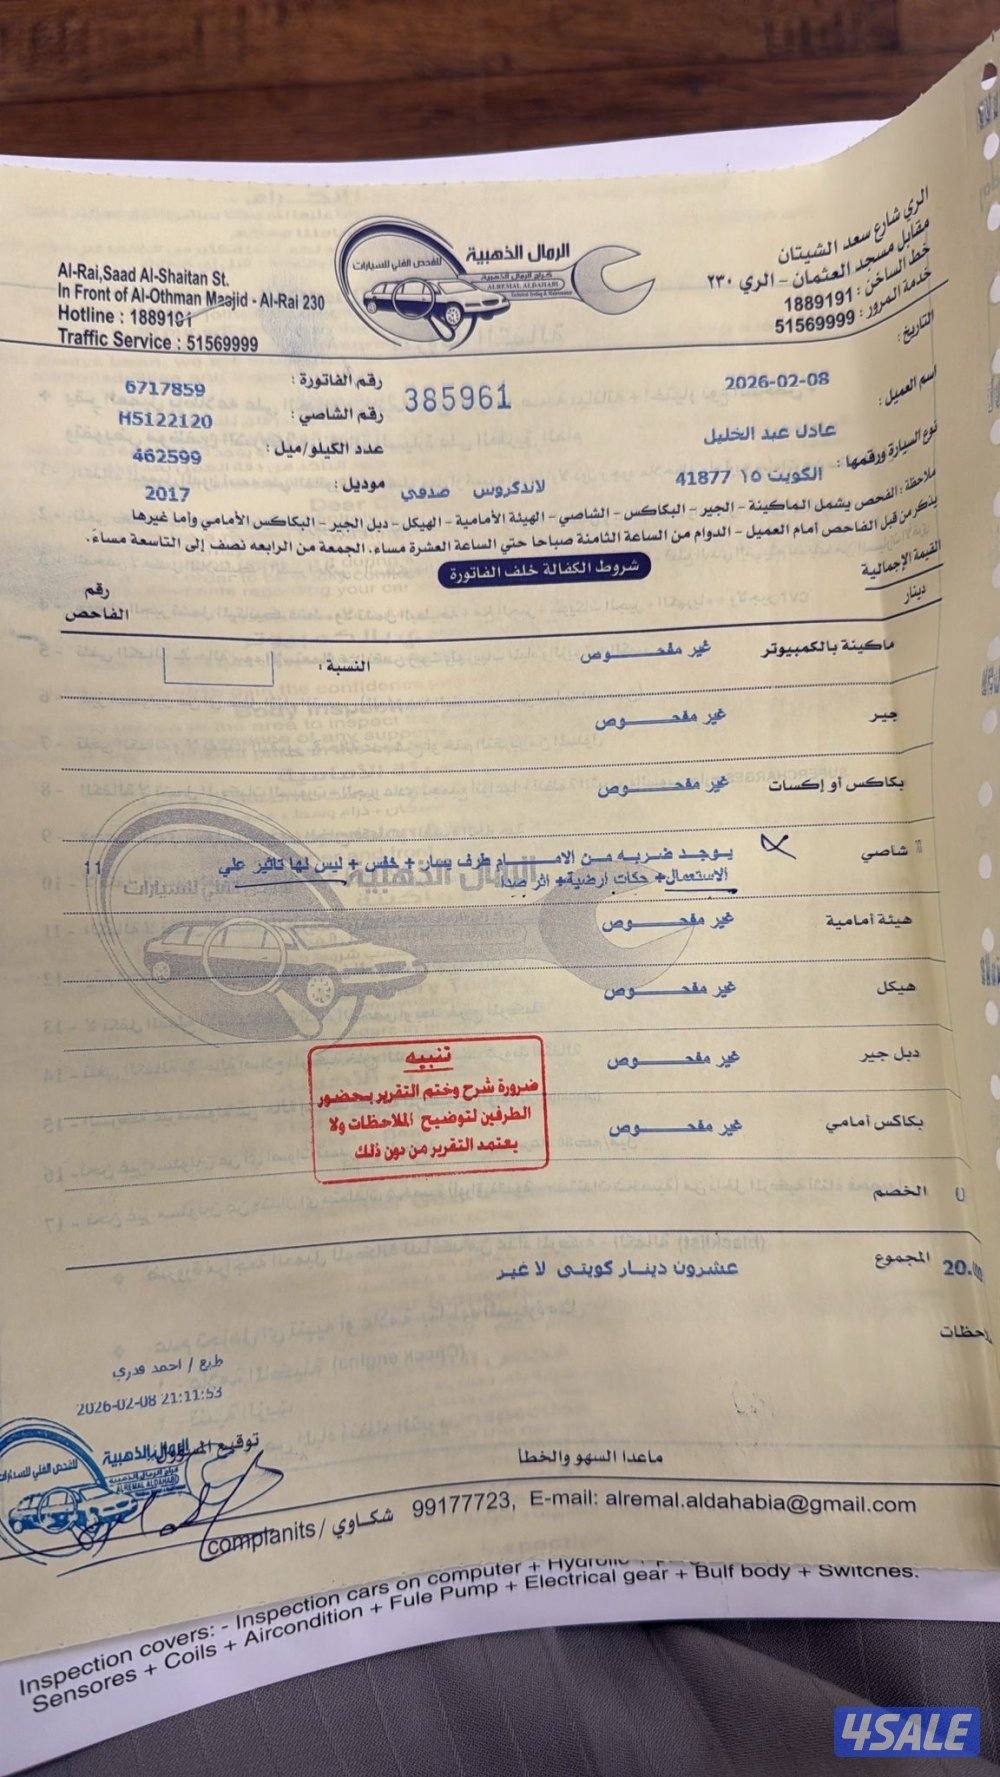 الرمال الذهبية
للفحص الفني للسيارات
كراج الرمال الذهبية
ALREMAL ALDAHABI
Technical Testing & Maintenance
الري شارع سعد الشيتان
مقابل مسجد العثمان - الري ٢٣٠
خط الساخن : 1889191
خدمة المرور : 51569999
Al-Rai,Saad Al-Shaitan St.
In Front of Al-Othman Maajid - Al-Rai 230
Hotline : 1889191
Traffic Service : 51569999
التاريخ : 2026-02-08
385961
رقم الفاتورة : 6717859
اسم العميل : عادل عبد الخليل
رقم الشاصي : H5122120
نوع السيارة ورقمها : الكويت ١٥ 41877
عدد الكيلو/ميل : 462599
لاندكروس صدفي
موديل : 2017
ملاحظة : الفحص يشمل الماكينة - الجير - البكاكس - الشاصي - الهيئة الأمامية - الهيكل - دبل الجير - البكاكس الأمامي وأما غيرها
يذكر من قبل الفاحص أمام العميل - الدوام من الساعة الثامنة صباحا حتي الساعة العشرة مساء. الجمعة من الرابعه نصف إلى التاسعة مساءً.
شروط الكفالة خلف الفاتورة
القيمة الإجمالية
دينار
رقم
الفاحص
ماكينة بالكمبيوتر غير مفحوص النسبة :
جير غير مفحوص
بكاكس أو إكسات غير مفحوص
شاصي يوجد ضربه من الامام طرف يسار + خفس + ليس لها تاثير علي 11
الاستعمال+ حكات ارضية+ اثر صدا
هيئة أمامية غير مفحوص
هيكل غير مفحوص
دبل جير غير مفحوص
بكاكس أمامي غير مفحوص
تنبيه
ضرورة شرح وختم التقرير بحضور
الطرفين لتوضيح الملاحظات ولا
يعتمد التقرير من دون ذلك
الخصم
المجموع عشرون دينار كويتى لا غير
طبع / احمد قدري
2026-02-08 21:11:53
توقيع المسؤول
الرمال الذهبية
للفحص الفني للسيارات
ALREMAL ALDAHABI
ماعدا السهو والخطأ
complanits / شكاوي 99177723, E-mail: alremal.aldahabia@gmail.com
Inspection covers: - Inspection cars on computer +
Sensores + Coils + Aircondition + Fule Pump + Electrical gear + Bulf body + Switches.
4SALE